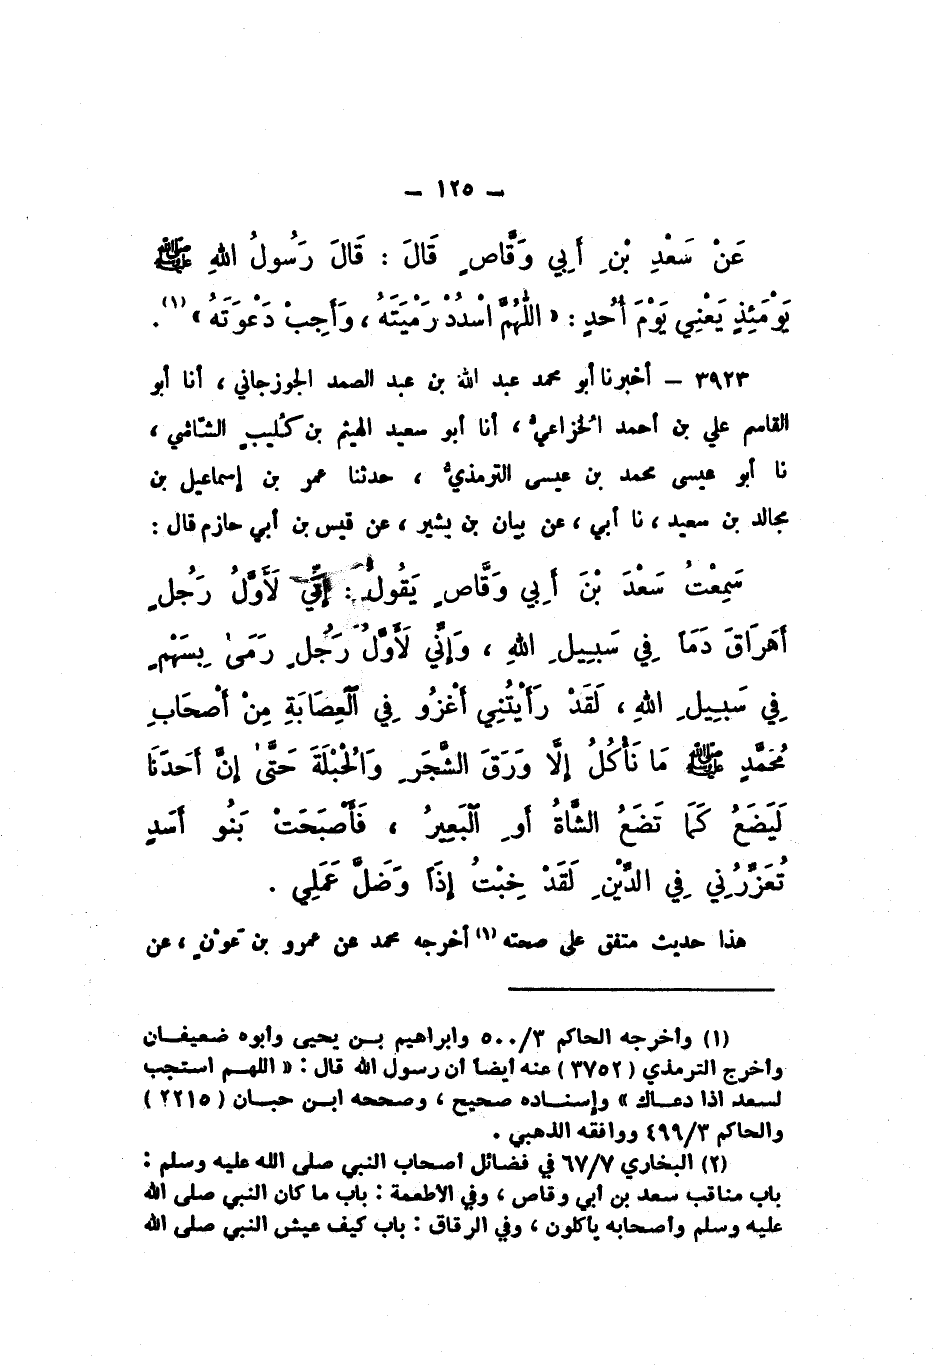 — ١٢٥ —
عَنْ سَعْدِ بْنِ أَبِي وَقَّاصٍ قَالَ : قَالَ رَسُولُ اللهِ ﷺ
يَوْمَئِذٍ يَعْنِي يَوْمَ أُحُدٍ : « اللَّهُمَّ اسْدُدْ رَمْيَتَهُ ، وَأَجِبْ دَعْوَتَهُ » (١) .
٣٩٢٣ — أخبرنا أبو محمد عبد الله بن عبد الصمد الجوزجاني ، أنا أبو
القاسم علي بن أحمد الخزاعيُّ ، أنا أبو سعيد الهيثم بن كُليبٍ الشَّاشي ،
نا أبو عيسى محمد بن عيسى الترمذيُّ ، حدثنا عمر بن إسماعيل بن
مجالد بن سعيد ، نا أبي ، عن بيان بن بشير ، عن قيس بن أبي حازم قال :
سَمِعْتُ سَعْدَ بْنَ أَبِي وَقَّاصٍ يَقُولُ : إِنِّي لَأَوَّلُ رَجُلٍ
أَهَرَاقَ دَمَاً فِي سَبِيلِ اللهِ ، وَإِنِّي لَأَوَّلُ رَجُلٍ رَمَىٰ بِسَهْمٍ
فِي سَبِيلِ اللهِ ، لَقَدْ رَأَيْتُنِي أَغْزُو فِي الْعِصَابَةِ مِنْ أَصْحَابِ
مُحَمَّدٍ ﷺ مَا نَأْكُلُ إِلَّا وَرَقَ الشَّجَرِ وَالْحُبْلَةَ حَتَّىٰ إِنَّ أَحَدَنَا
لَيَضَعُ كَمَا تَضَعُ الشَّاةُ أَوِ الْبَعِيرُ ، فَأَصْبَحَتْ بَنُو أَسَدٍ
تُعَزِّرُنِي فِي الدِّيْنِ لَقَدْ خِبْتُ إِذَاً وَضَلَّ عَمَلِي .
هذا حديث متفق على صحته (١) أخرجه محمد عن عمرو بن عَوْنٍ ، عن
(١) وأخرجه الحاكم ٥٠٠/٣ وابراهيم بن يحيى وأبوه ضعيفان
وأخرج الترمذي ( ٣٧٥٢ ) عنه أيضاً أن رسول الله قال : « اللهم استجب
لسعد اذا دعاك » وإسناده صحيح ، وصححه ابن حبان ( ٢٢١٥ )
والحاكم ٤٩٩/٣ ووافقه الذهبي .
(٢) البخاري ٦٧/٧ في فضائل أصحاب النبي صلى الله عليه وسلم :
باب مناقب سعد بن أبي وقاص ، وفي الاطعمة : باب ما كان النبي صلى الله
عليه وسلم وأصحابه يأكلون ، وفي الرقاق : باب كيف عيش النبي صلى الله